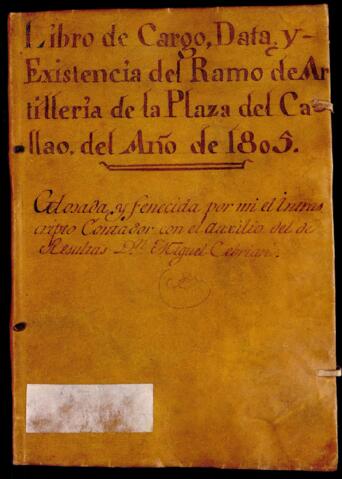 Libro de Cargo, Data, y-
Existencia del Ramo de Ar
tilleria de la Plaza del Ca-
llao, del Año de 1805.
Glosada, y fenecida por mi el Infras
cripto Contador con el auxilio del de
Resultas Dn. Miguel Cebrian.